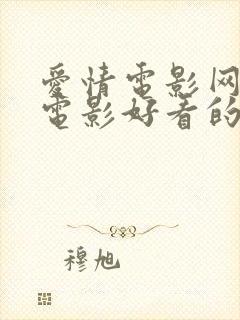 爱情電影网
電影好看的
穆旭